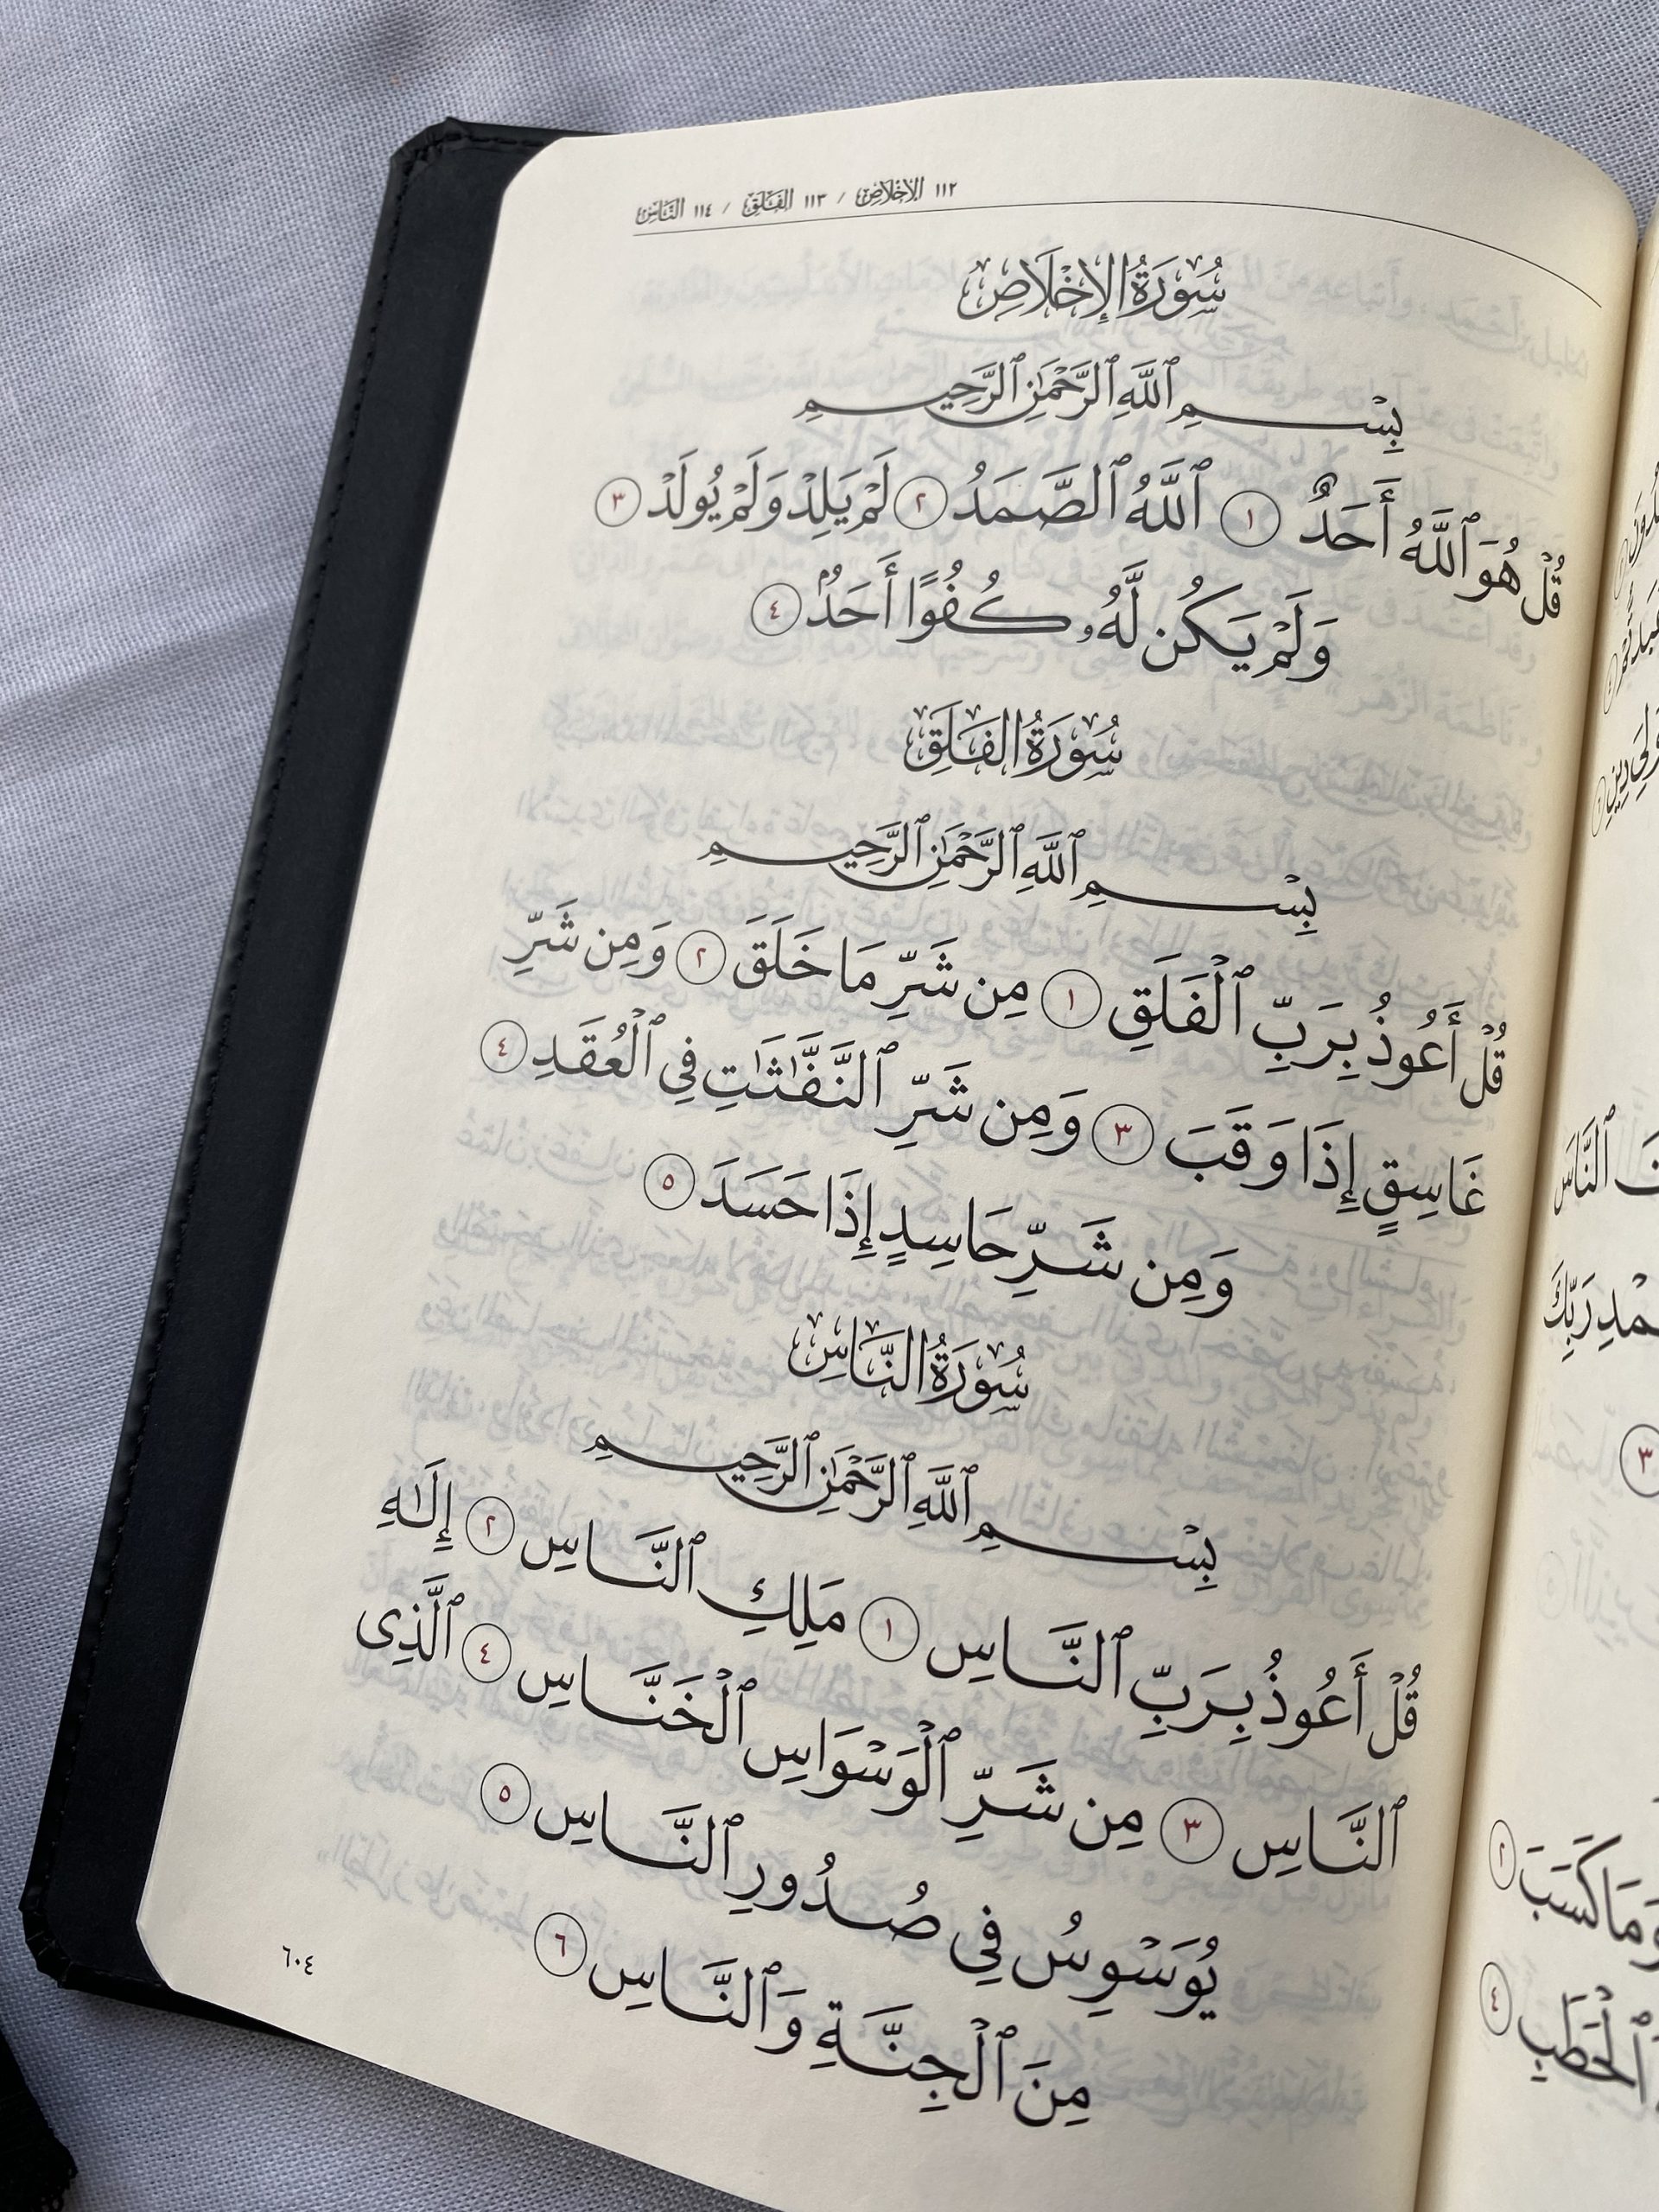 ١١٢ الإخلاص / ١١٣ الفلق / ١١٤ الناس
سُورَةُ الإِخْلَاصِ
بِسْمِ ٱللَّهِ ٱلرَّحْمَٰنِ ٱلرَّحِيمِ
قُلْ هُوَ ٱللَّهُ أَحَدٌ ١ ٱللَّهُ ٱلصَّمَدُ ٢ لَمْ يَلِدْ وَلَمْ يُولَدْ ٣
وَلَمْ يَكُن لَّهُۥ كُفُوًا أَحَدٌۢ ٤
سُورَةُ الفَلَقِ
بِسْمِ ٱللَّهِ ٱلرَّحْمَٰنِ ٱلرَّحِيمِ
قُلْ أَعُوذُ بِرَبِّ ٱلْفَلَقِ ١ مِن شَرِّ مَا خَلَقَ ٢ وَمِن شَرِّ
غَاسِقٍ إِذَا وَقَبَ ٣ وَمِن شَرِّ ٱلنَّفَّٰثَٰتِ فِي ٱلْعُقَدِ ٤
وَمِن شَرِّ حَاسِدٍ إِذَا حَسَدَ ٥
سُورَةُ النَّاسِ
بِسْمِ ٱللَّهِ ٱلرَّحْمَٰنِ ٱلرَّحِيمِ
قُلْ أَعُوذُ بِرَبِّ ٱلنَّاسِ ١ مَلِكِ ٱلنَّاسِ ٢ إِلَٰهِ
ٱلنَّاسِ ٣ مِن شَرِّ ٱلْوَسْوَاسِ ٱلْخَنَّاسِ ٤ ٱلَّذِى
يُوَسْوِسُ فِي صُدُورِ ٱلنَّاسِ ٥
مِنَ ٱلْجِنَّةِ وَٱلنَّاسِ ٦
٦٠٤
وَلِيَ دِينِ ٦
ٱلنَّاسَ
رَبِّكَ
٣
وَمَا كَسَبَ ٢
ٱلْحَطَبِ ٤